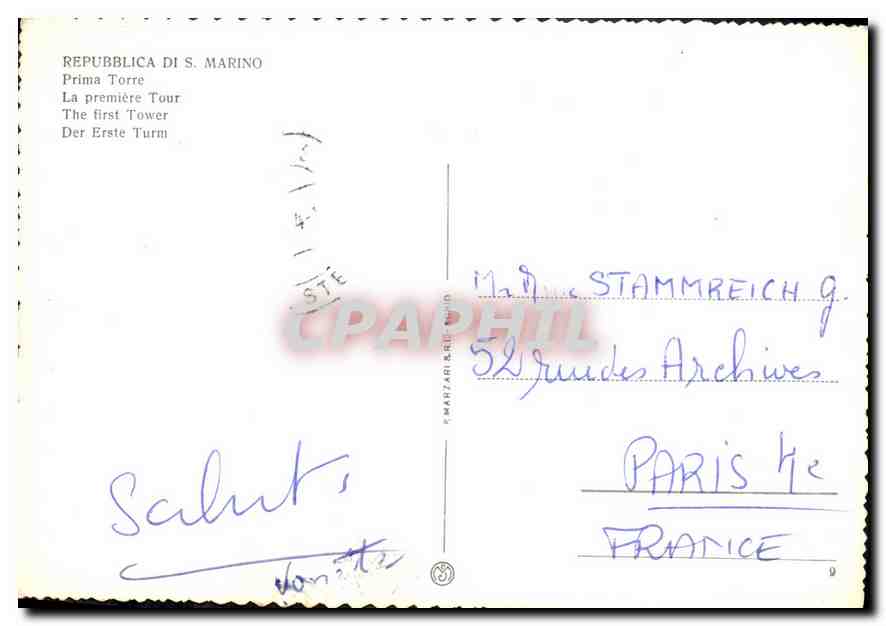 REPUBBLICA DI S. MARINO
Prima Torre
La première Tour
The first Tower
Der Erste Turm
STE
CPAPHIL
Mr Mme STAMMREICH G.
52 rue des Archives
PARIS 4e
FRANCE
Saluts
F. MARZARI S.R.L.
9